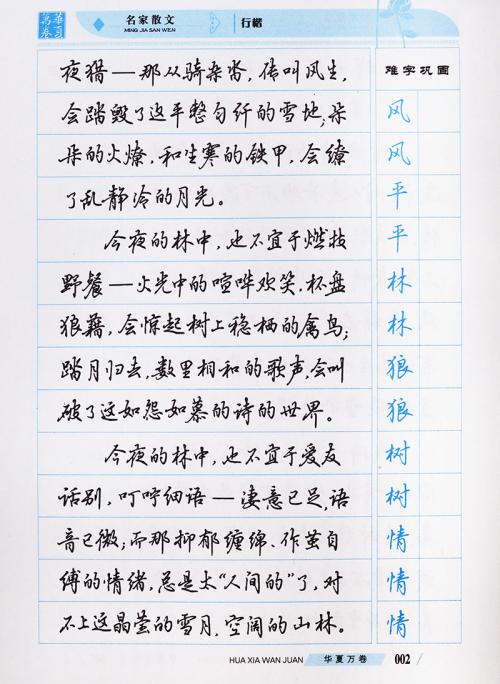 華夏
萬卷
名家散文
MING JIA SAN WEN
行楷
夜猎——那从骑杂沓,传叫风生,
会踏毁了这平整匀纤的雪地;朵
朵的火燎,和生寒的铁甲,会缭
了乱静冷的月光。
今夜的林中,也不宜于燃枝
野餐——火光中的喧哗欢笑,杯盘
狼藉,会惊起树上稳栖的禽鸟;
踏月归去,数里相和的歌声,会叫
破了这如怨如慕的诗的世界。
今夜的林中,也不宜于爱友
话别,叮咛细语——凄意已足,语
音已微;而那抑郁缠绵、作茧自
缚的情绪,总是太“人间的”了,对
不上这晶莹的雪月,空阔的山林。
难字巩固
风
风
平
平
林
林
狼
狼
树
树
情
情
情
HUA XIA WAN JUAN
华夏万卷
002